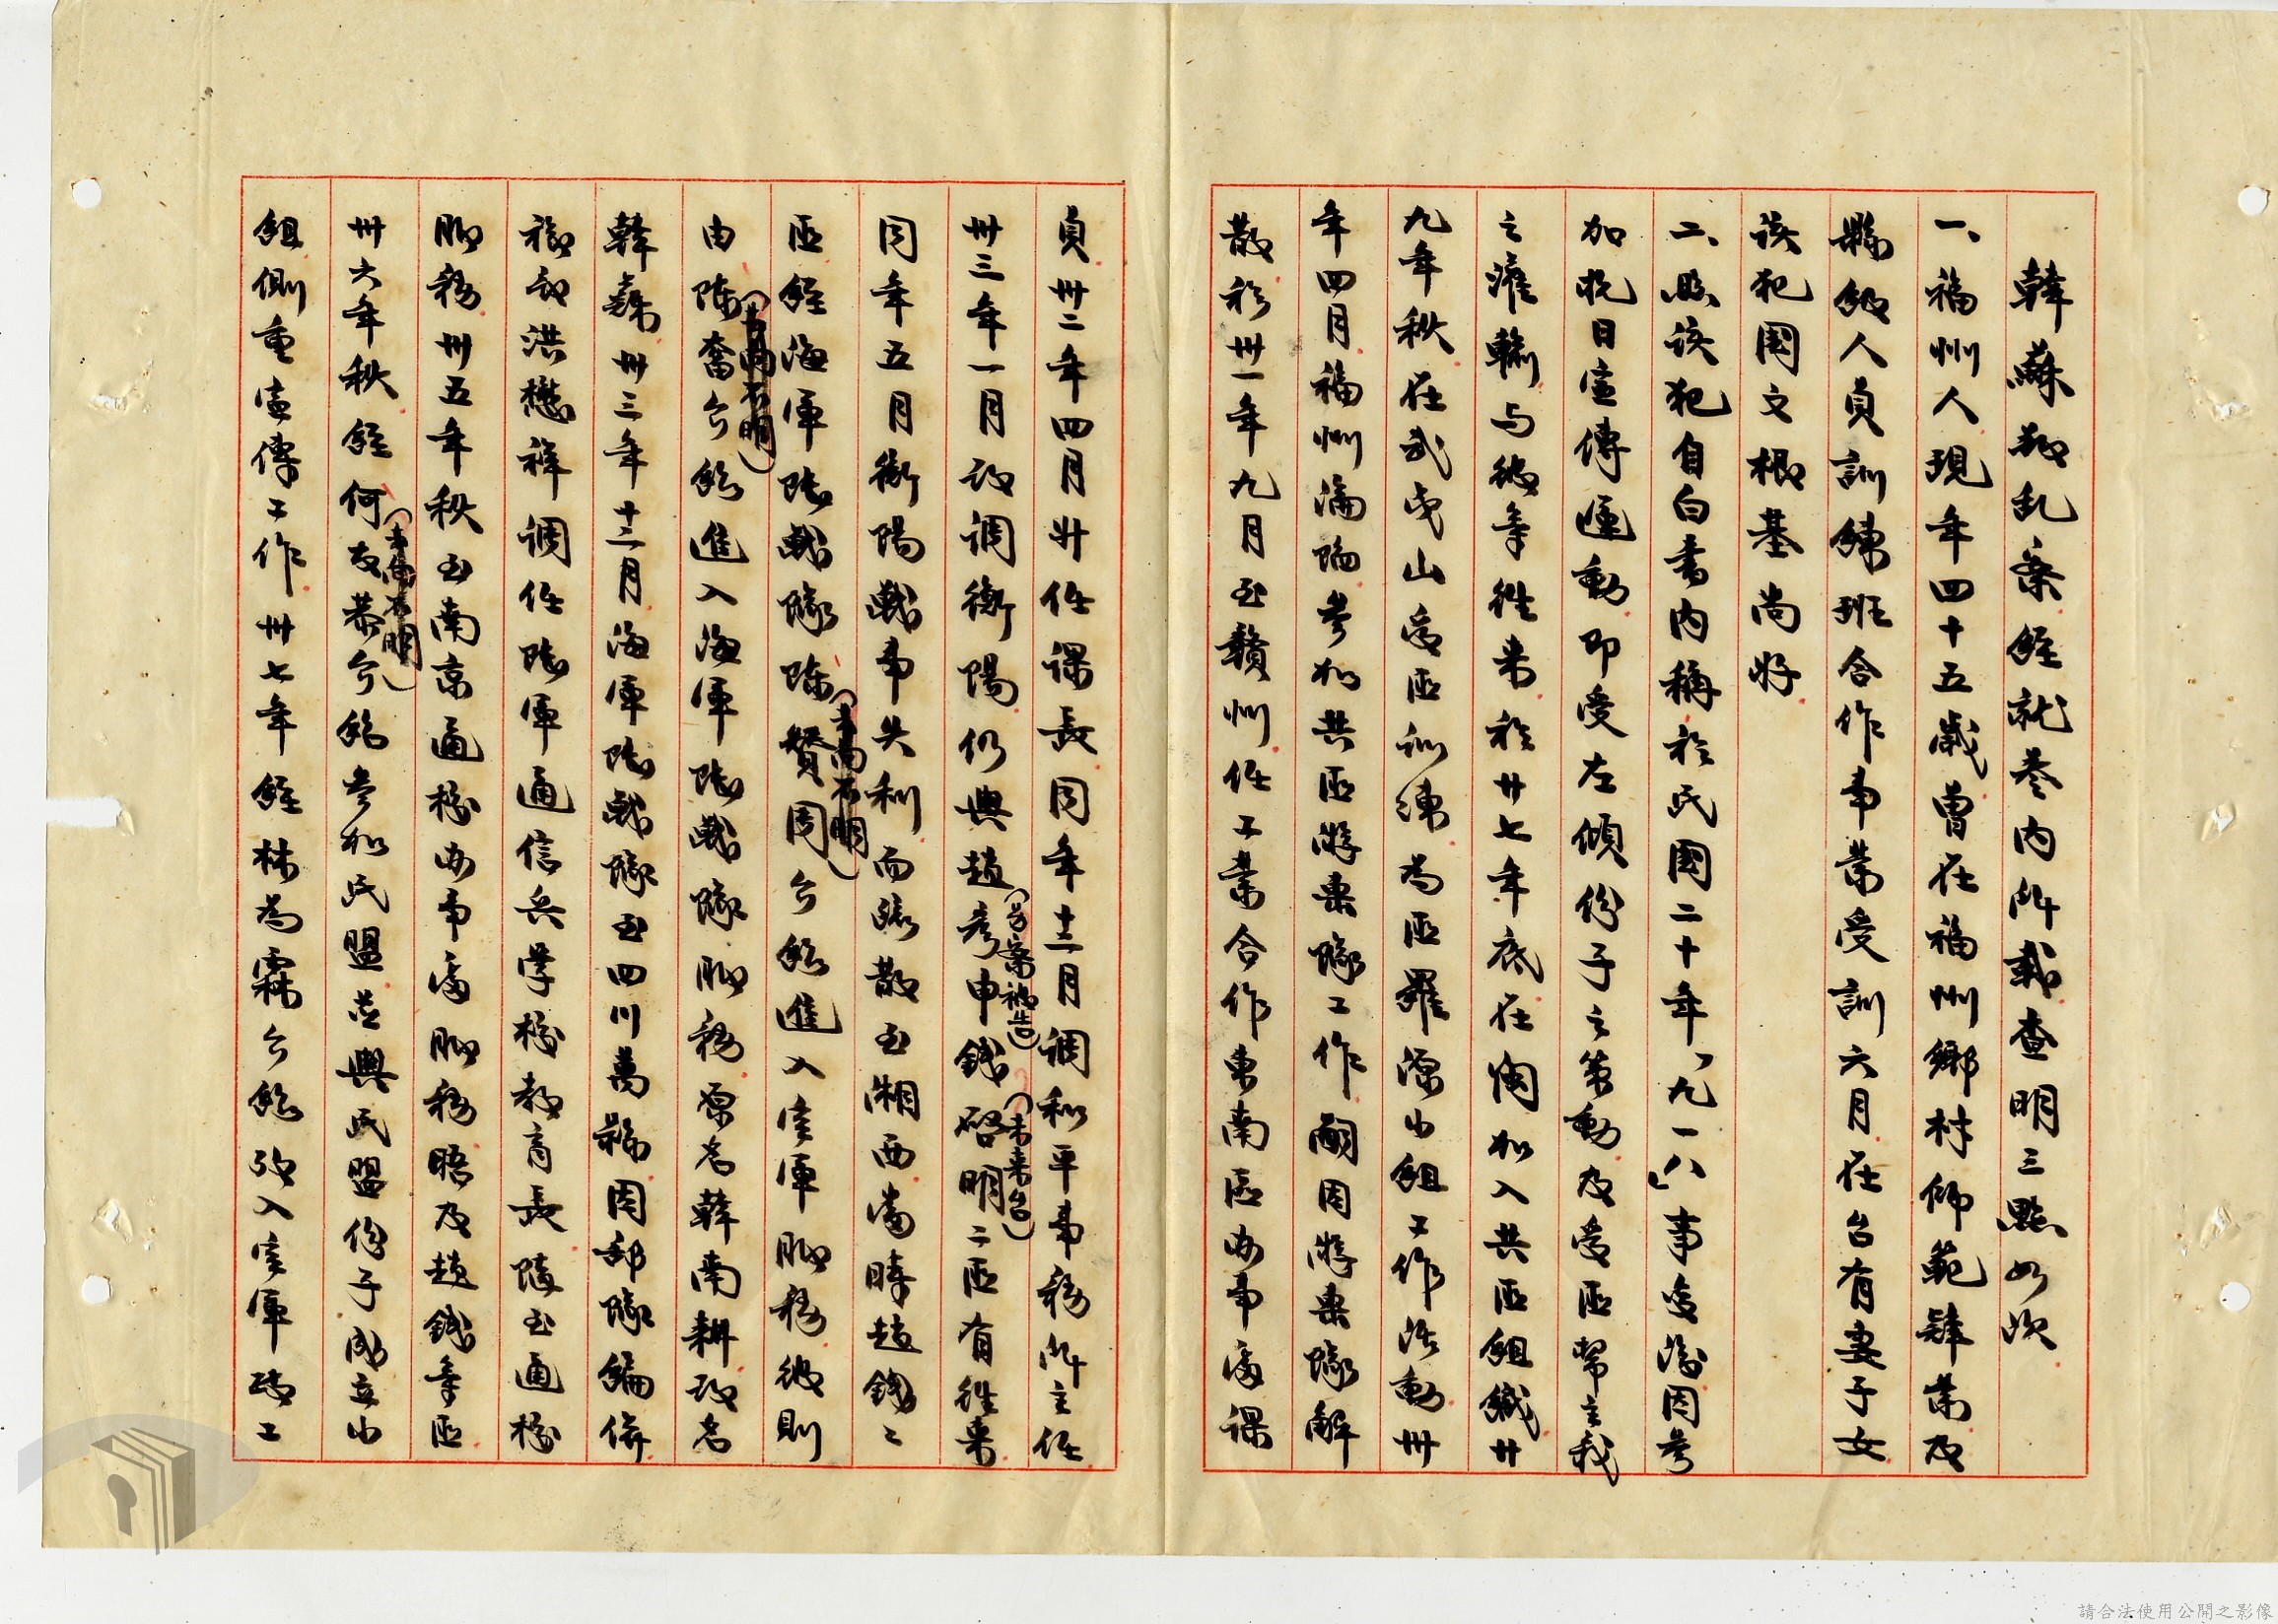 韓蘇叛乱案經就卷内所載查明三點如次
一、福州人現年四十五歲曾在福州鄉村師範肄業及
縣級人員訓練班合作事業受訓六月在台有妻子女
該犯國文根基尚好
二、照該犯自白書内稱於民國二十年「九一八」事变後因參
加抗日宣傳運動即受左傾份子之策動及受匪幫主義
之灌輸与彼等徃来於廿七年底在閩加入共匪組織廿
九年秋在武夷山受匪訓練為匪羅源小組工作活動卅
年四月福州淪陷參加共匪游击隊工作嗣因游击隊解
散於卅一年九月至贛州任工業合作東南區办事處課
員卅二年四月升任課長同年十二月調和平事務所主任
卅三年一月改調衡陽仍與趙彥申錢啓明二匪有徃来
(另案被告)
(未来台)
同年五月衡陽戰事失利而疏散至湘西當時趙錢二
匪經海軍陆戰隊陈贊周介紹進入海軍服務彼則
(去向不明)
由陈奮介紹進入海軍陆戰隊服務原名韓南耕改名
(去向不明)
韓蘇卅三年十二月海軍陆戰隊至四川萬縣因部隊編併
後部洪懋祥調任陆軍通信兵學校教育長隨至通校
服務卅五年秋至南京通校办事處服務晤及趙錢等匪
卅六年秋經何友恭介紹參加民盟並與民盟份子成立小
(去向不明)
組側重宣傳工作卅七年經林為霖介紹改入空軍碍工
請合法使用公開之影像